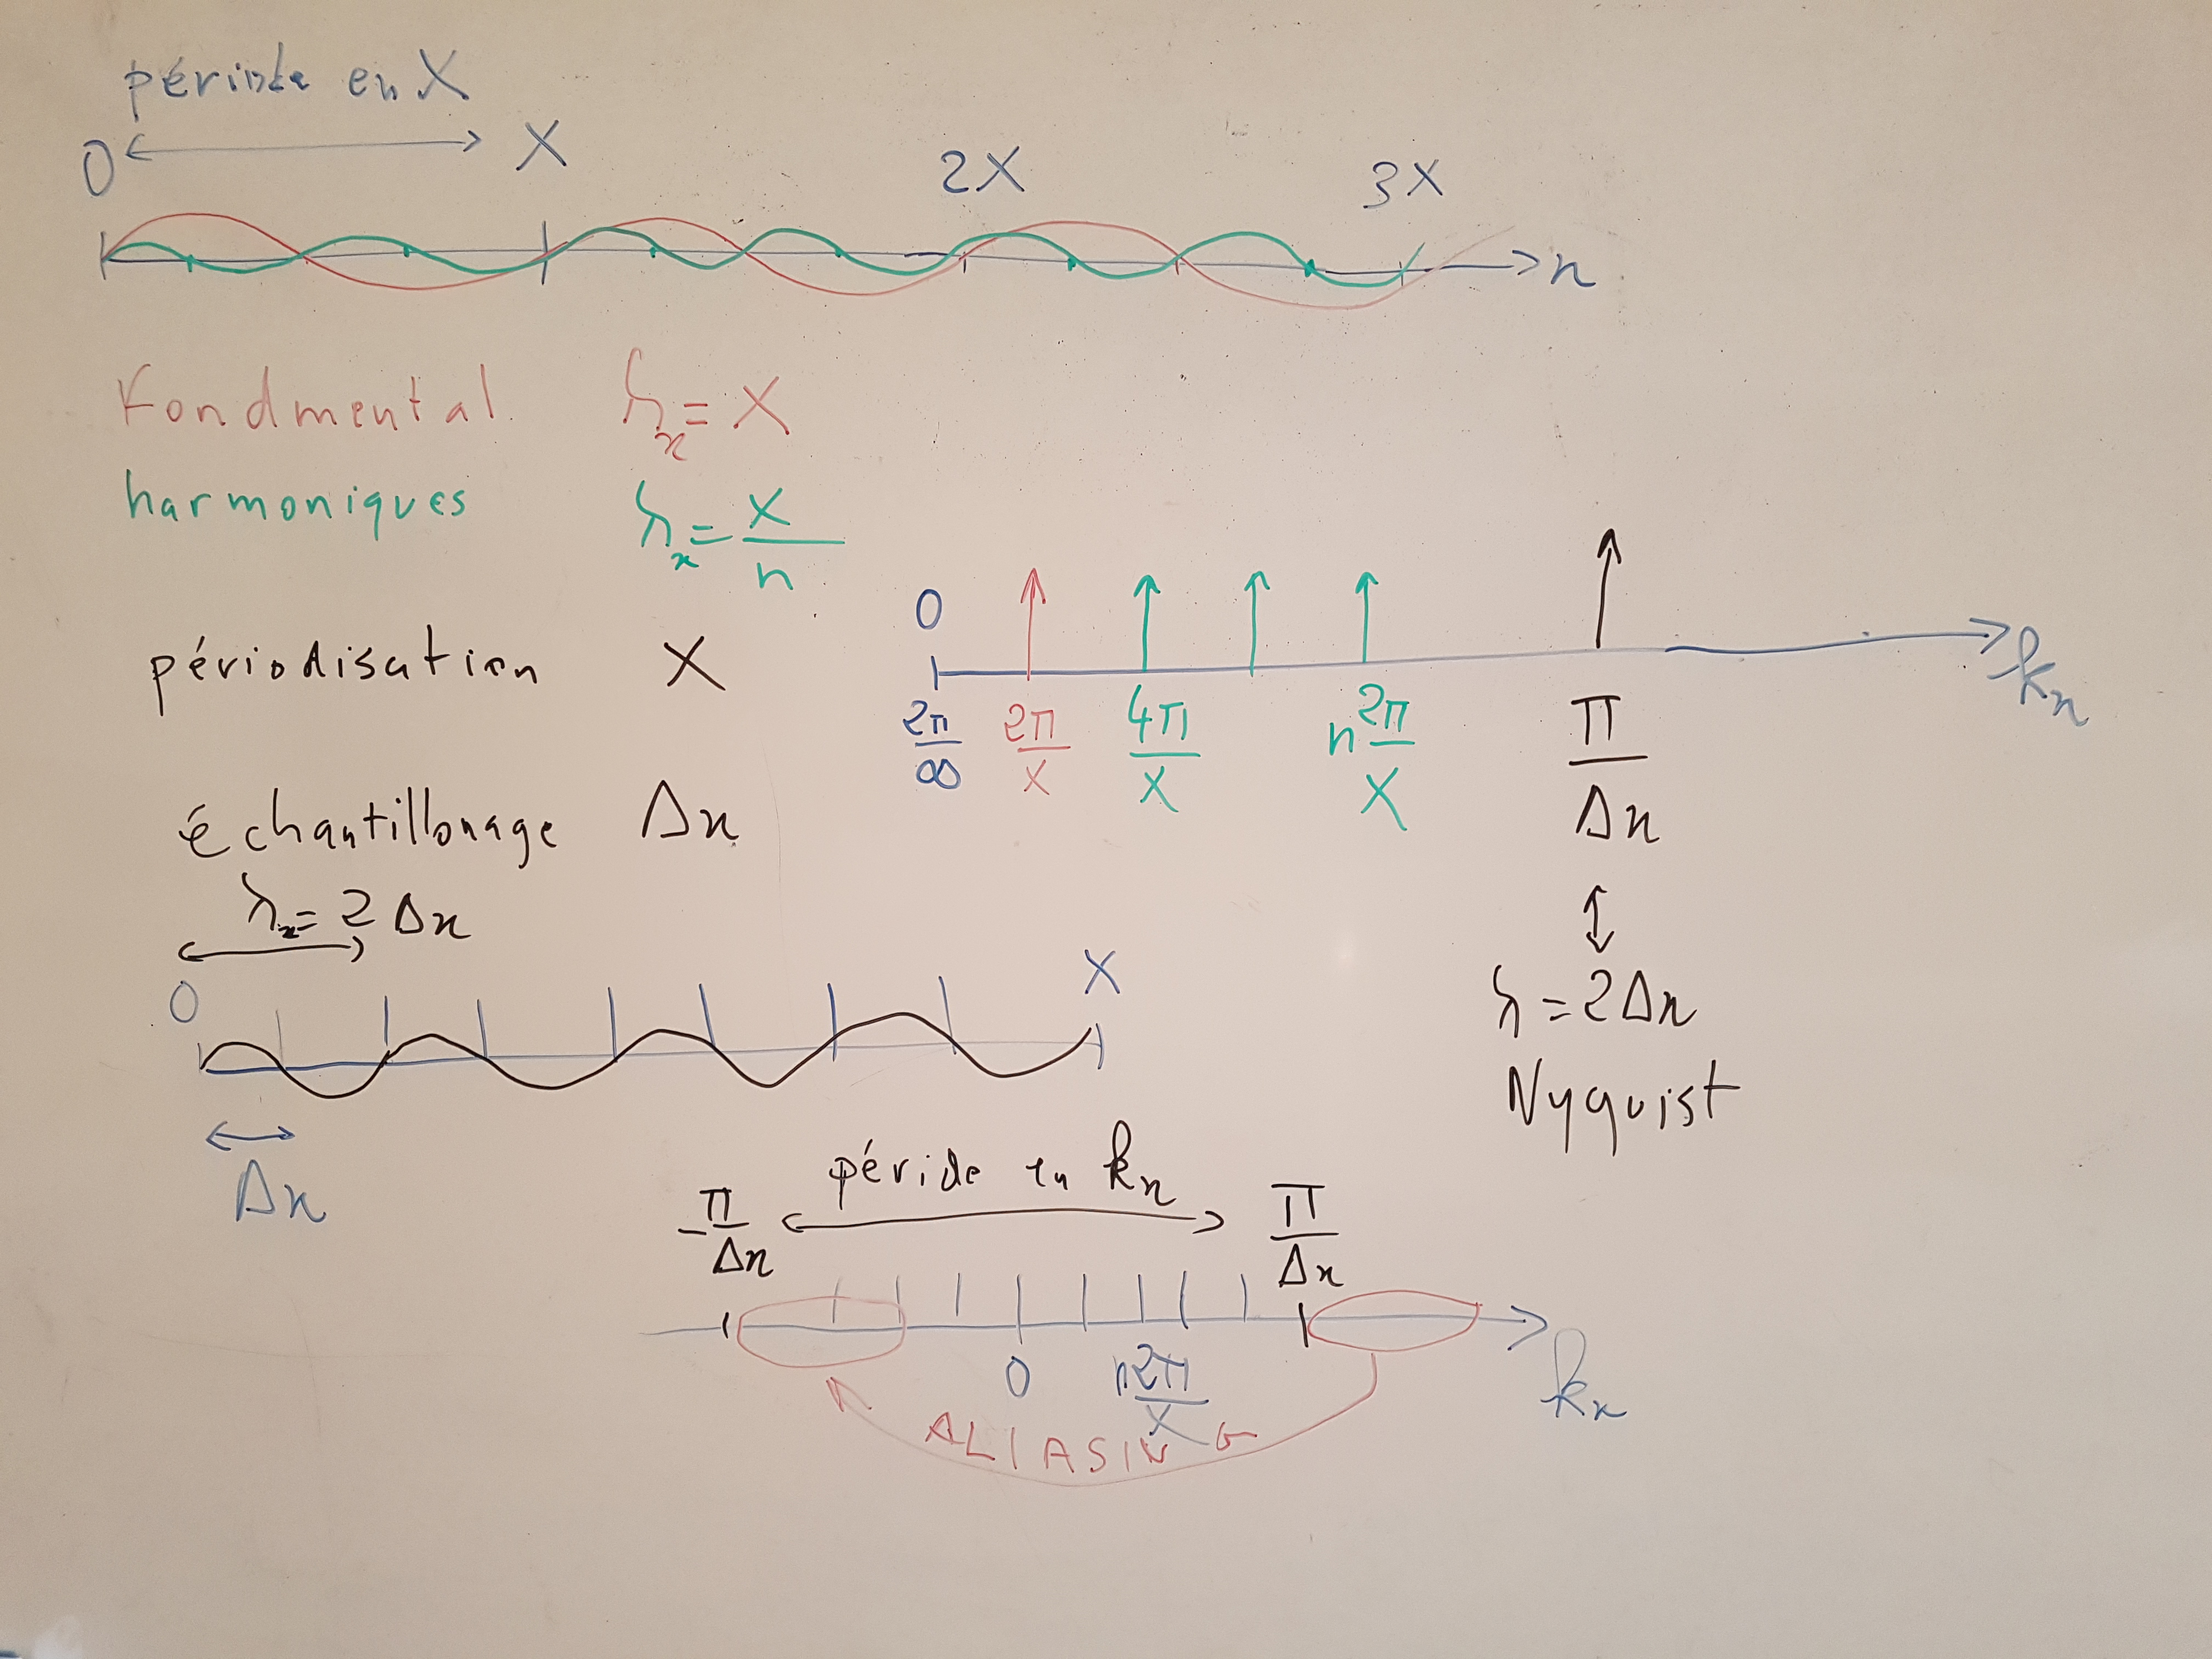 période en X
0 X 2X 3X
x
Fondmental λx = X
harmoniques λx = X/n
0
périodisation X
kx
2π/∞ 2π/X 4π/X n 2π/X π/Δx
échantillonage Δx
λx = 2 Δx
0 X
λ = 2Δx
Nyquist
Δx
péride en kx
-π/Δx π/Δx
0 n2π/X kx
ALIASING